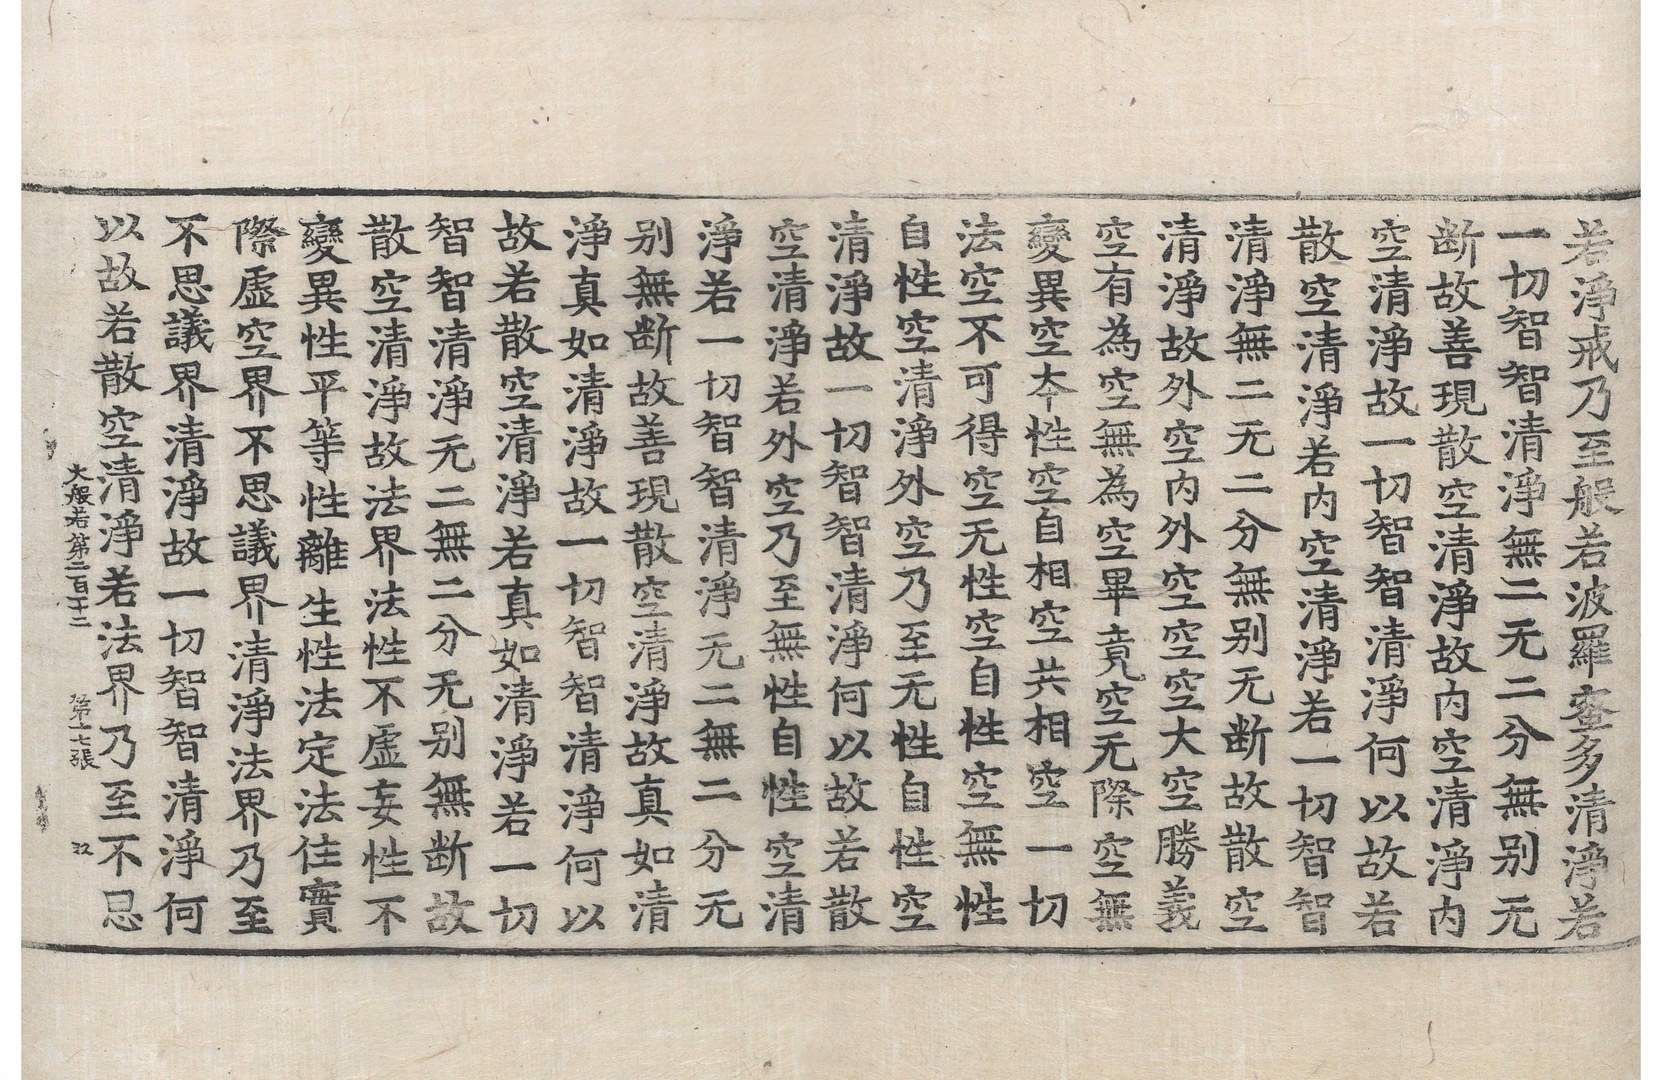 若淨戒乃至般若波羅蜜多清淨若
一切智智清淨無二无二分無别无
断故善現散空清淨故内空清淨内
空清淨故一切智智清淨何以故若
散空清淨若内空清淨若一切智智
清淨無二无二分無别无断故散空
清淨故外空内外空空空大空勝義
空有為空無為空畢竟空无際空無
變異空夲性空自相空共相空一切
法空不可得空无性空自性空無性
自性空清淨外空乃至无性自性空
清淨故一切智智清淨何以故若散
空清淨若外空乃至無性自性空清
淨若一切智智清淨无二無二分无
别無断故善現散空清淨故真如清
淨真如清淨故一切智智清淨何以
故若散空清淨若真如清淨若一切
智智清淨无二無二分无别無断故
散空清淨故法界法性不虛妄性不
變異性平等性離生性法定法住實
際虛空界不思議界清淨法界乃至
不思議界清淨故一切智智清淨何
以故若散空清淨若法界乃至不思
大般若第二百十二 第十七張